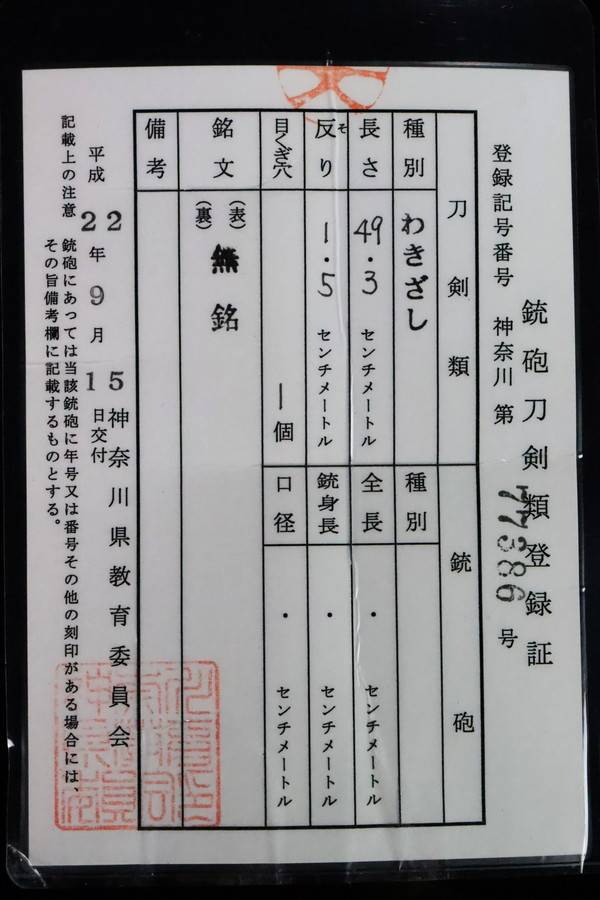 銃砲刀剣類登録証
登録記号番号 神奈川 第 77386 号
刀剣類
種別 わきざし
長さ 49.3 センチメートル
反り そ 1.5 センチメートル
目くぎ穴 1個
銘文 (表) 無銘
(裏)
備考
銃砲
種別
全長 ・ センチメートル
銃身長 ・ センチメートル
口径 ・ センチメートル
平成22年9月15日交付
神奈川県教育委員会
記載上の注意 銃砲にあっては当該銃砲に年号又は番号その他の刻印がある場合には、
その旨備考欄に記載するものとする。